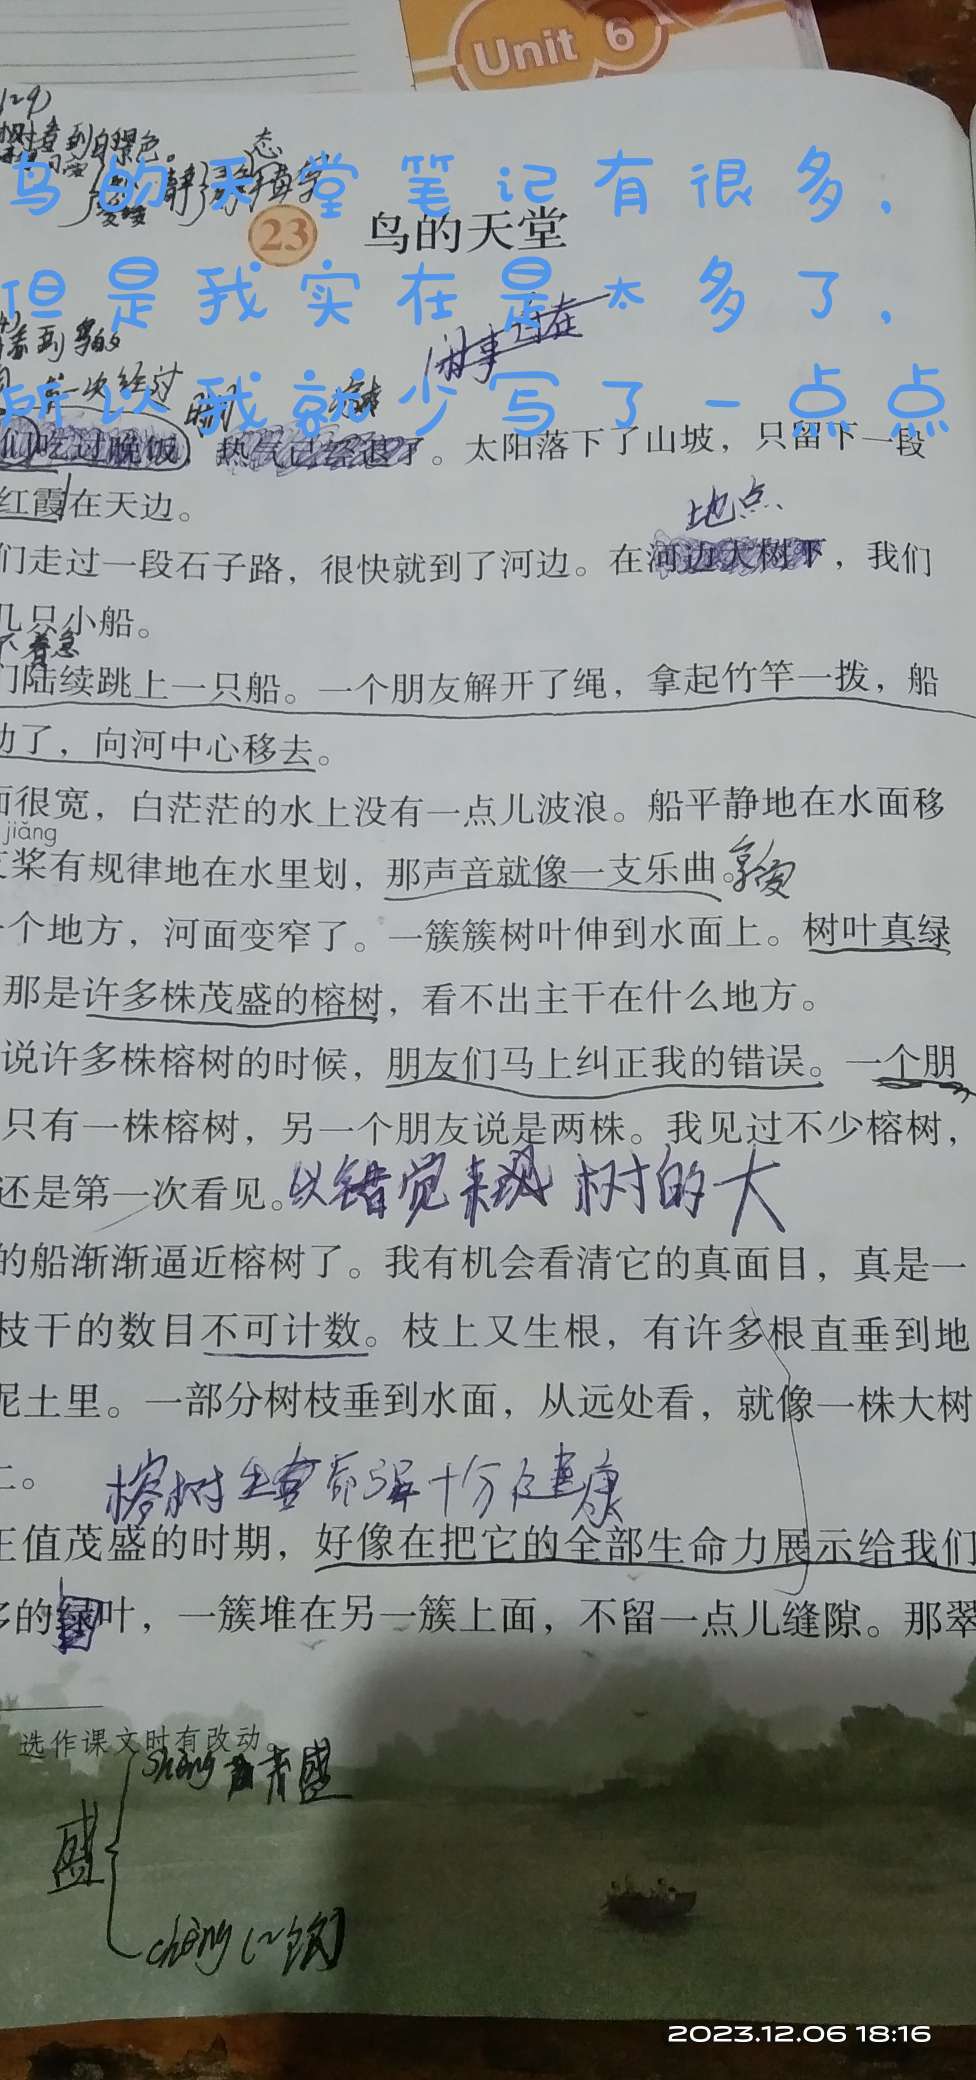 Unit 6
树看到的景色。
态
鸟的天堂笔记有很多，
23 鸟的天堂
但是我实在是太多了，
看到鸟的
第一次经过
所以我就少写了一点点
们吃过晚饭，热气已经退了。太阳落下了山坡，只留下一段
红霞在天边。
地点
们走过一段石子路，很快就到了河边。在河边大树下，我们
几只小船。
不着急
们陆续跳上一只船。一个朋友解开了绳，拿起竹竿一拨，船
动了，向河中心移去。
面很宽，白茫茫的水上没有一点儿波浪。船平静地在水面移
jiǎng
支桨有规律地在水里划，那声音就像一支乐曲。享受
一个地方，河面变窄了。一簇簇树叶伸到水面上。树叶真绿
那是许多株茂盛的榕树，看不出主干在什么地方。
说许多株榕树的时候，朋友们马上纠正我的错误。一个朋
只有一株榕树，另一个朋友说是两株。我见过不少榕树，
还是第一次看见。以错觉来现树的大
的船渐渐逼近榕树了。我有机会看清它的真面目，真是一
枝干的数目不可计数。枝上又生根，有许多根直垂到地
泥土里。一部分树枝垂到水面，从远处看，就像一株大树
上。
榕树生命力强十分健康
正值茂盛的时期，好像在把它的全部生命力展示给我们
多的绿叶，一簇堆在另一簇上面，不留一点儿缝隙。那翠
选作课文时有改动。
shèng 盛
盛
chéng (~饭)
2023.12.06 18:16